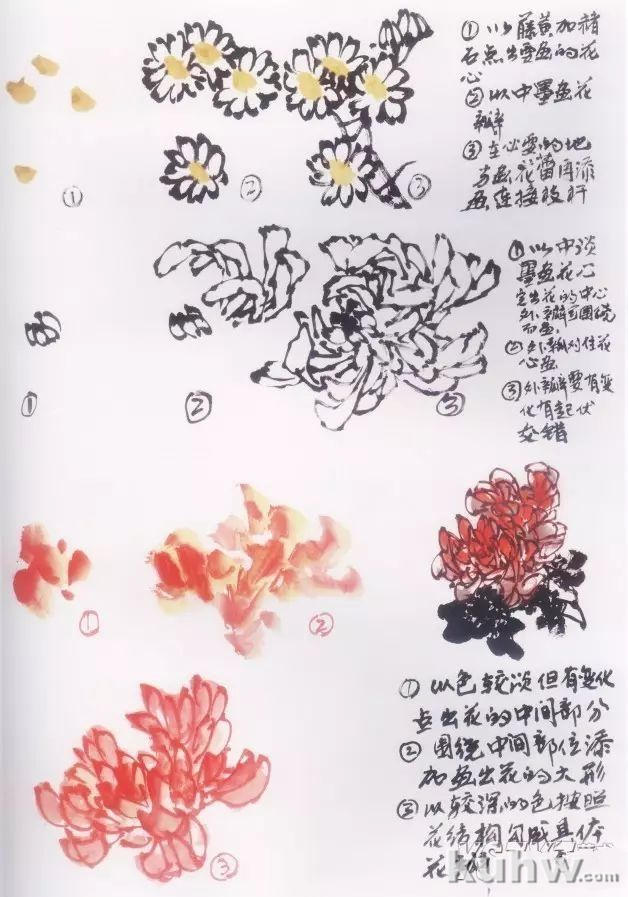 ① 以藤黄加赭
石点出要画的花
心
② 以中墨画花
瓣
③ 在必要的地
方画花蕾再添
画连接枝杆
①
②
③
① 以中淡
墨画花心
定出花的中心
外瓣可围绕
而画,
② 外瓣对住花
心画
③ 外瓣要有变
化有起伏
交错
①
②
③
①
②
① 以色较淡但有变化
点出花的中间部分
② 围绕中间部位添
加画出花的大形
③ 以较深的色按照
花结构勾成具体
花
③
kuhw.com